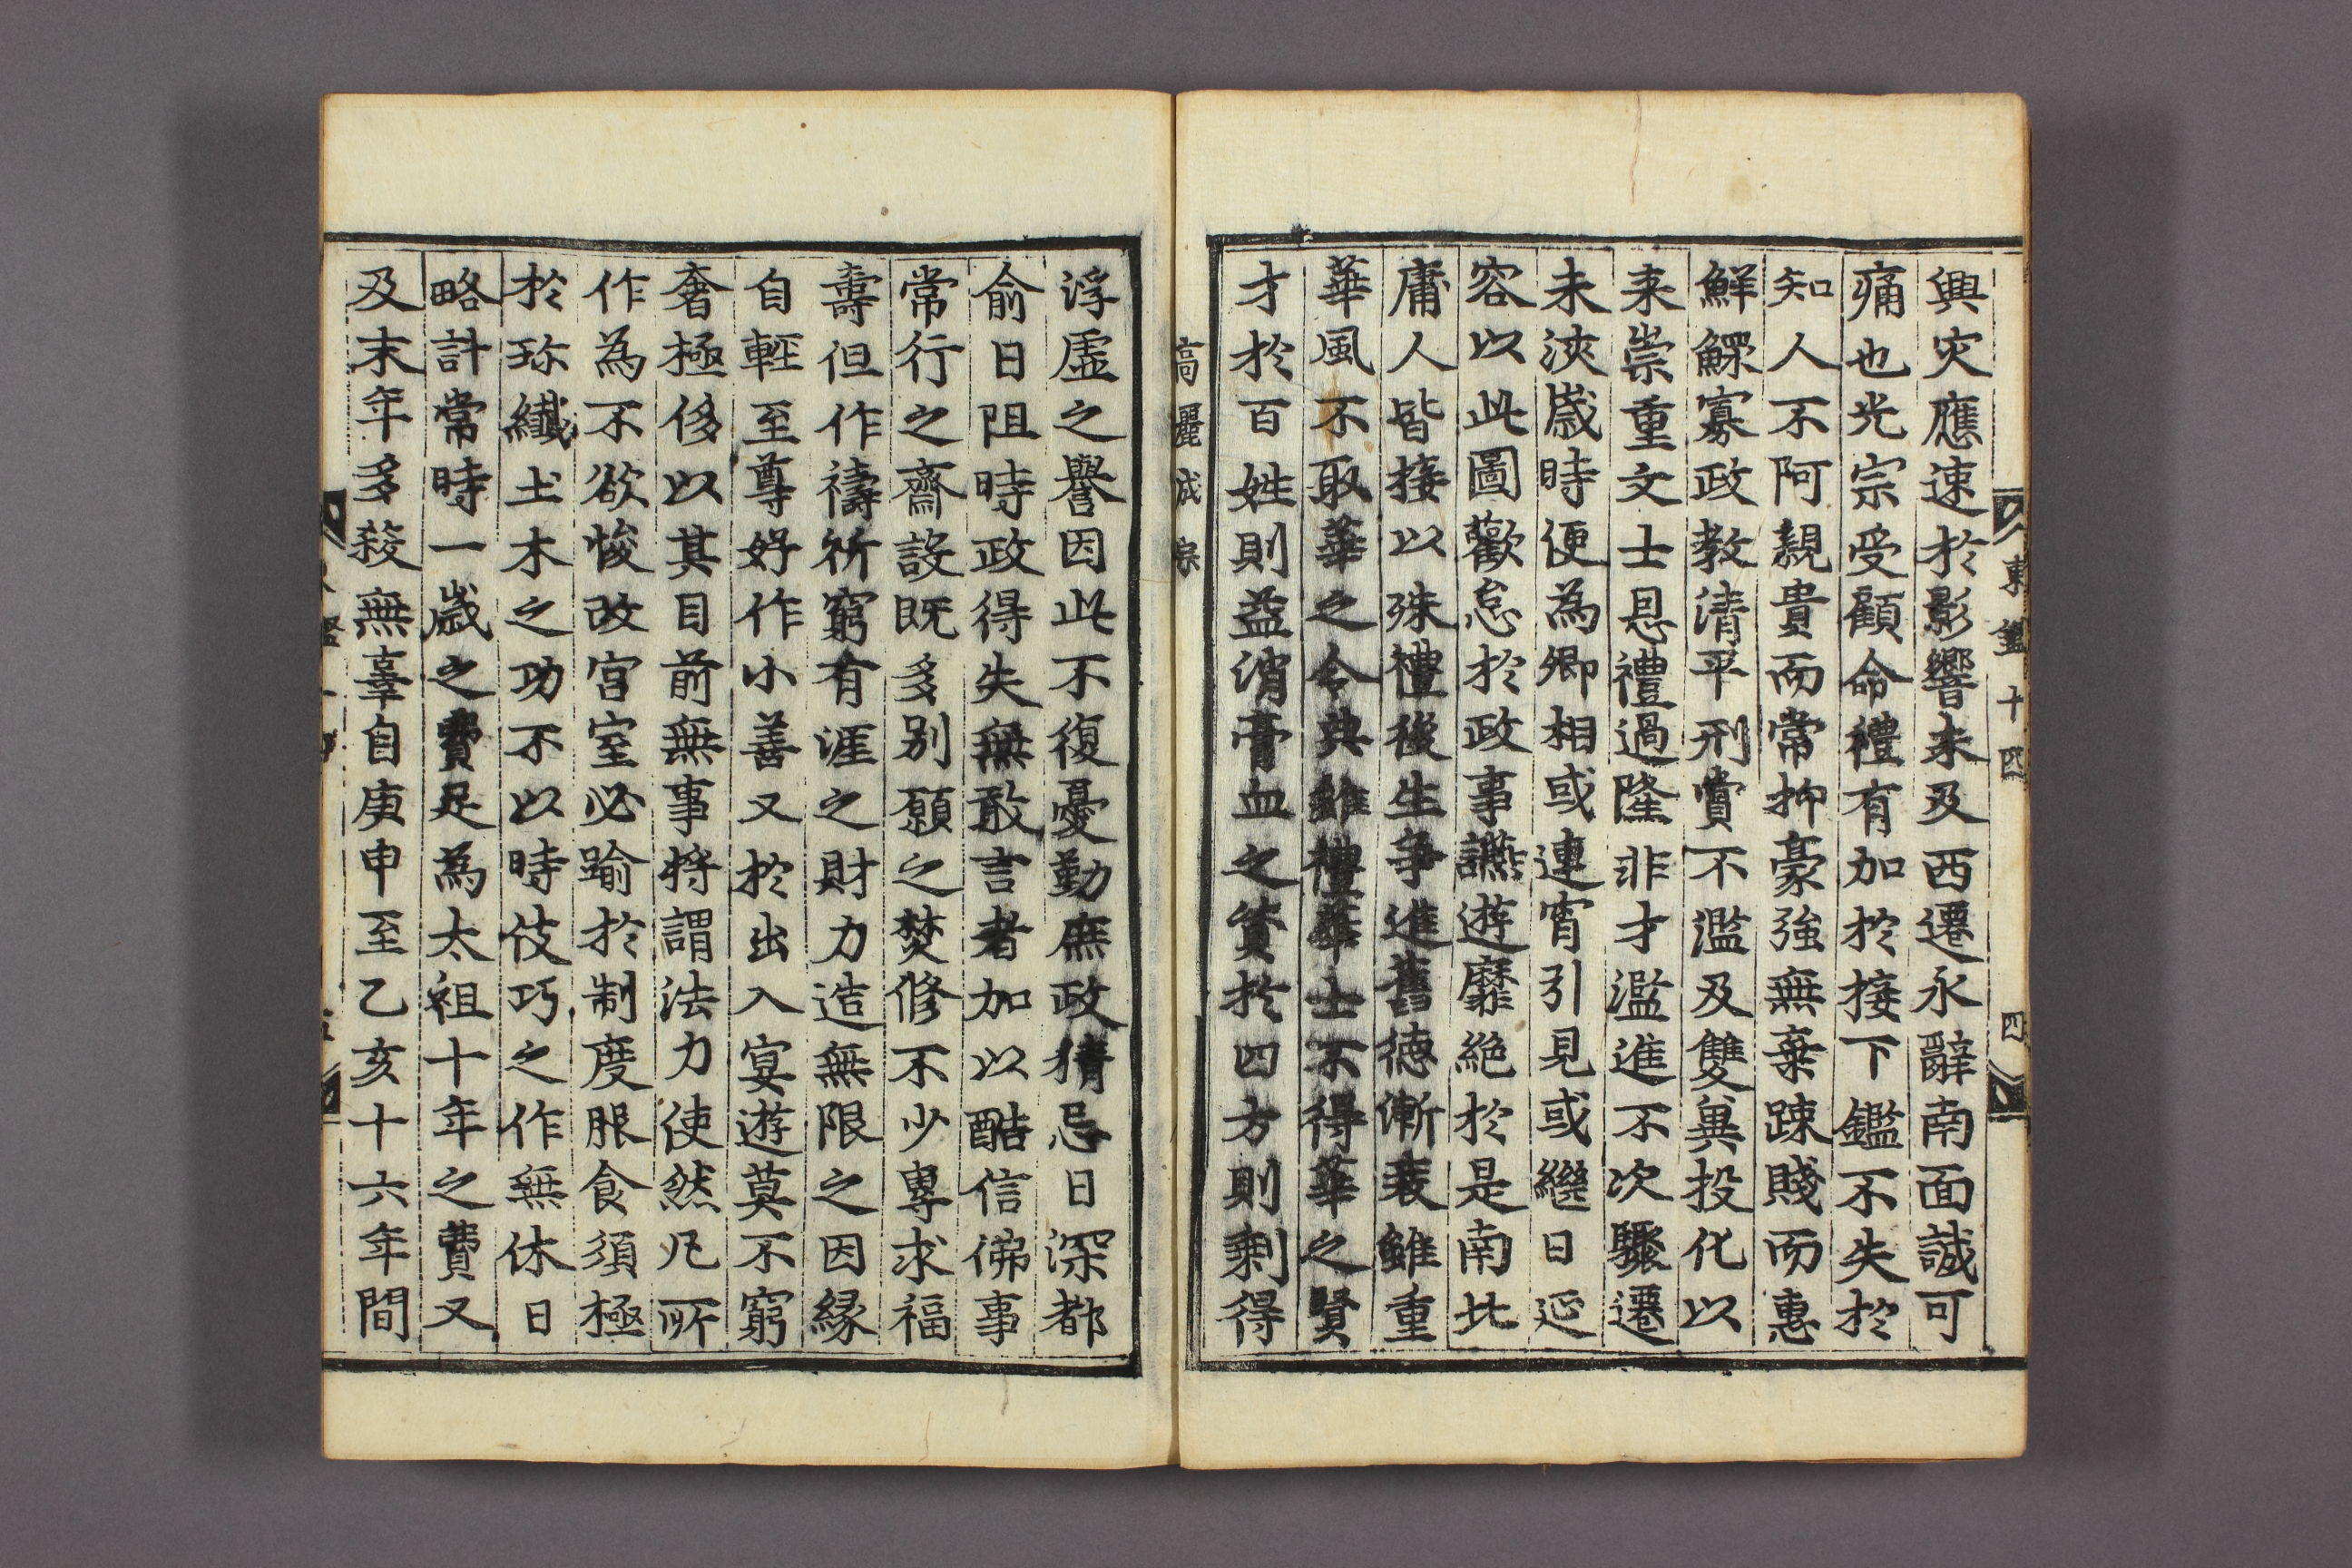 東鑑十四
四
興灾應速於影響未及西遷永辭南面誠可
痛也光宗受顧命禮有加於接下鑑不失於
知人不阿親貴而常抑豪強無棄踈賤而惠
鮮鰥寡政教清平刑賞不濫及雙兾投化以
来崇重文士恩禮過隆非才濫進不次驟遷
未浹歲時便為卿相或連宵引見或繼日延
容以此圖歡怠於政事讌遊靡絶於是南北
庸人皆接以殊禮後生争進舊德漸衰雖重
華風不取華之令典雖禮華士不得華之賢
才於百姓則益消膏血之資於四方則剩得
高麗成宗
浮虛之譽因此不復憂勤庶政猜忌日深都
俞日阻時政得失無敢言者加以酷信佛事
常行之齋設既多別願之焚修不少專求福
壽但作禱祈窮有涯之財力造無限之因緣
自輕至尊好作小善又於出入宴遊莫不窮
奢極侈以其目前無事將謂法力使然凡所
作為不欲悛改宮室必踰於制度服食須極
於珎纖土木之功不以時伎巧之作無休日
略計常時一歲之費足為太祖十年之費又
及末年多殺無辜自庚申至乙亥十六年間